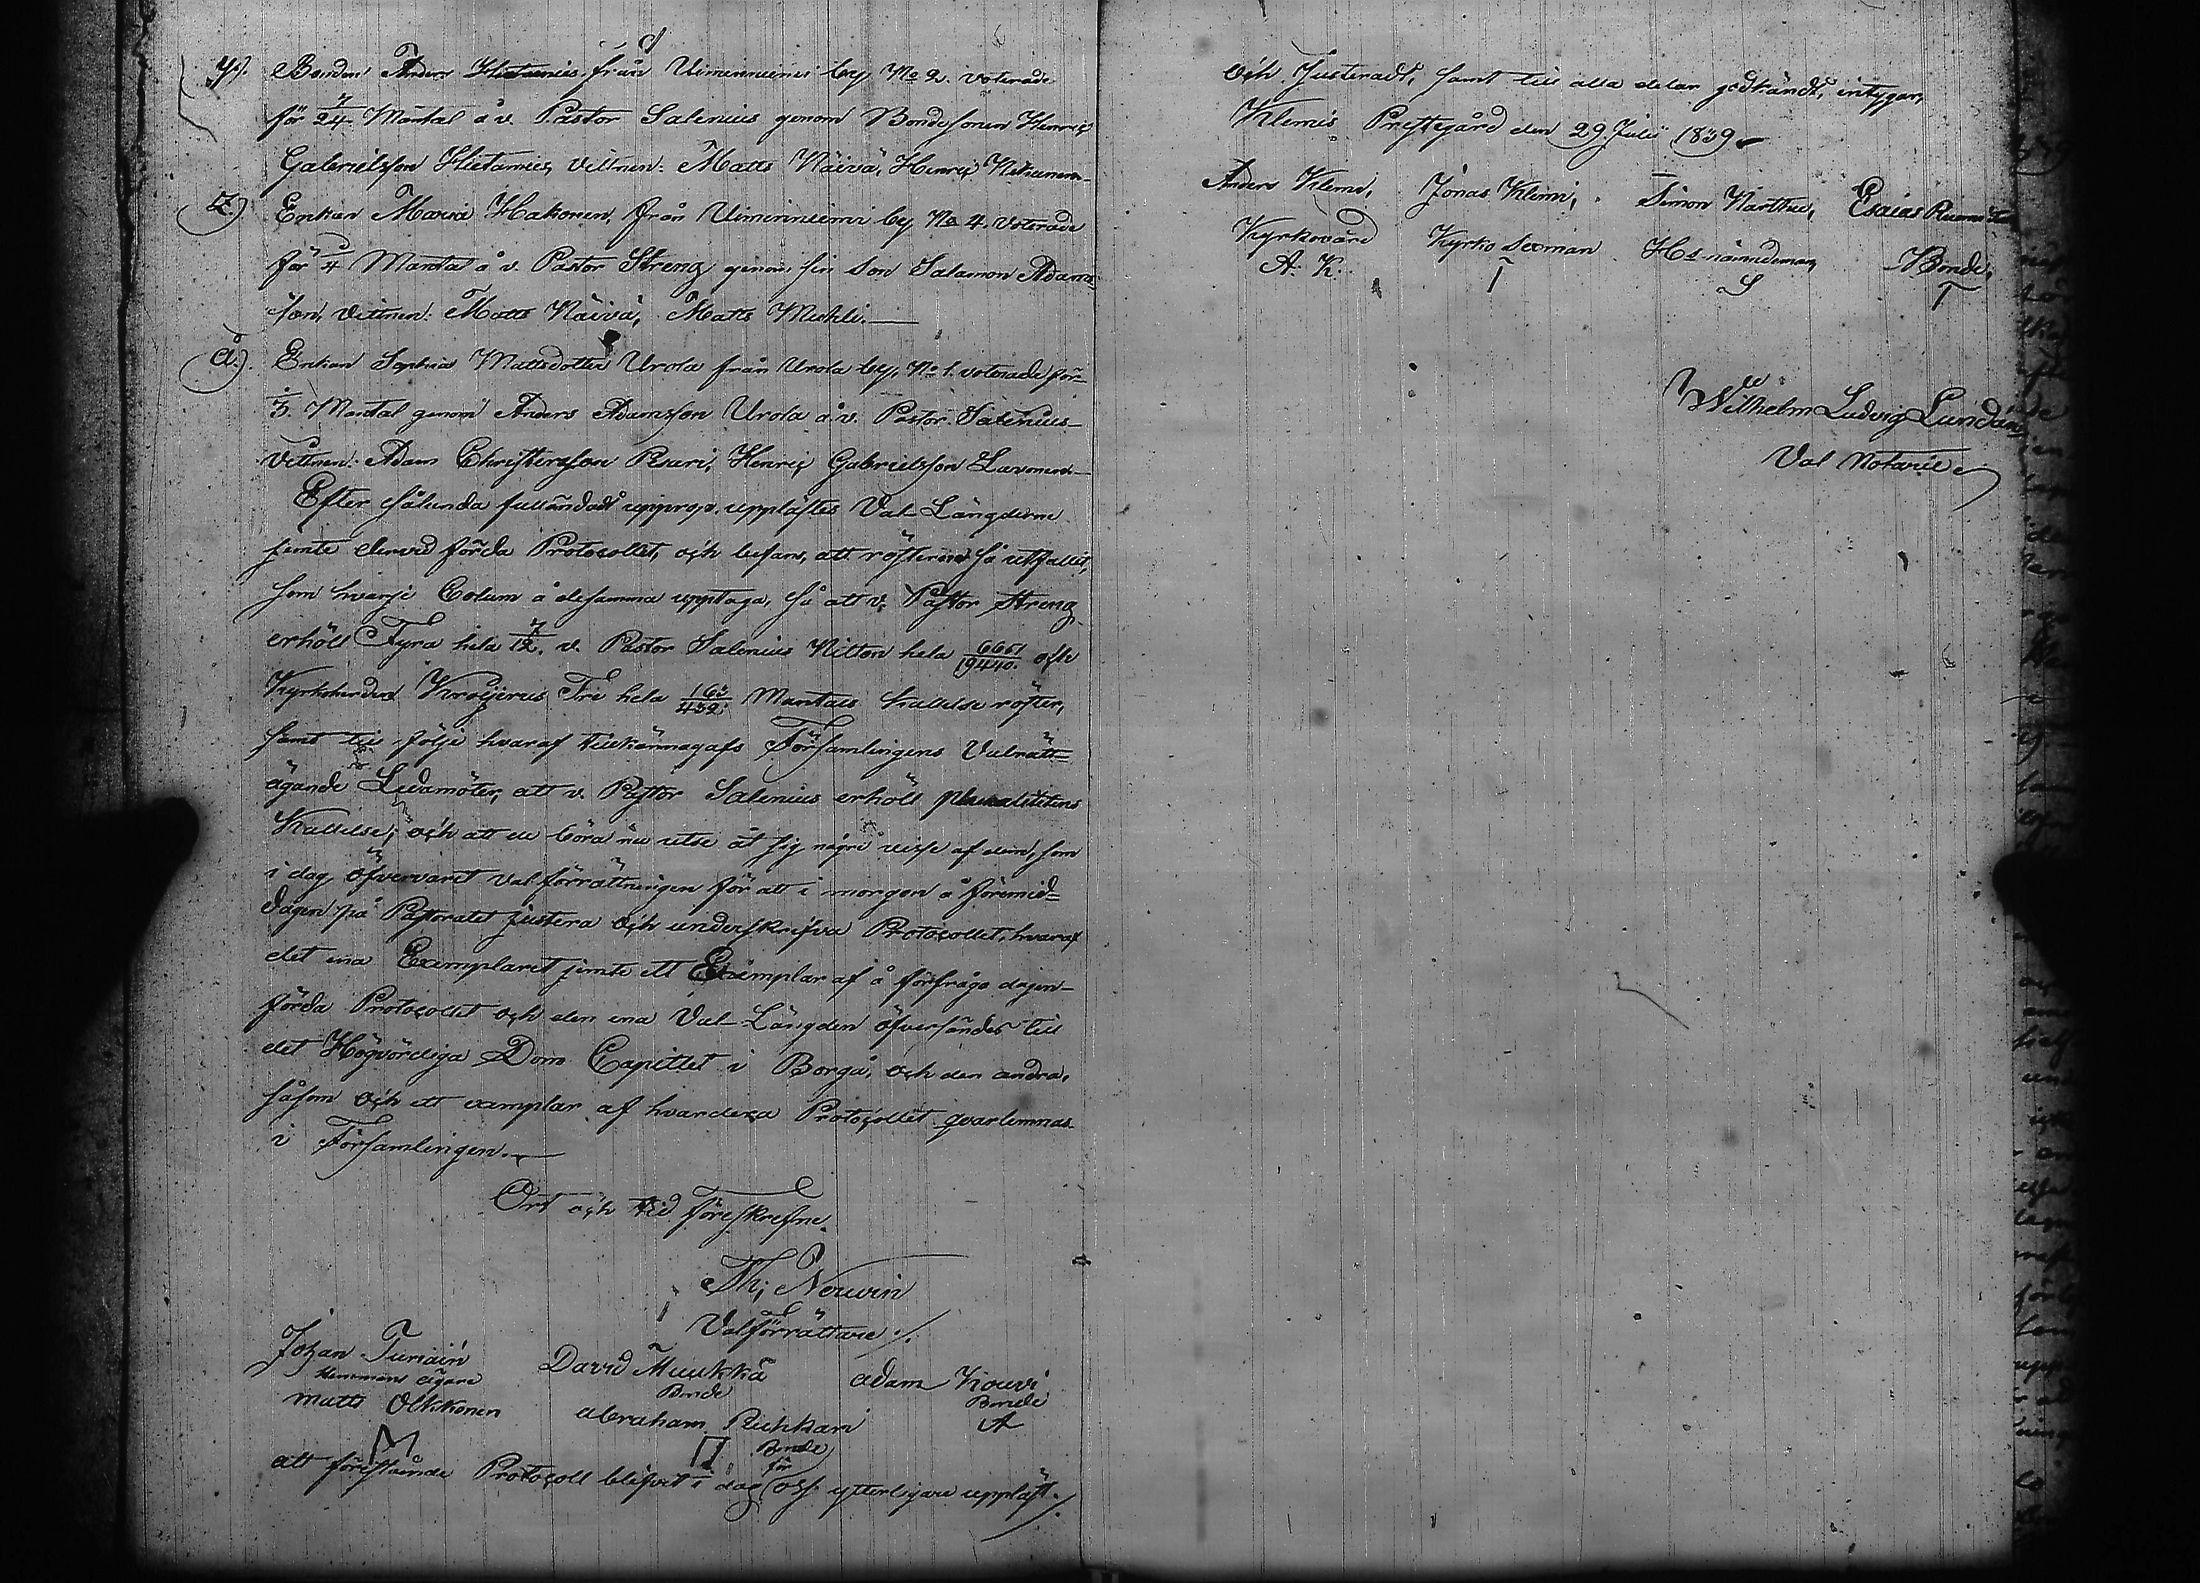 y.) Bonden Anders Hietamies från Uiminniemi by No 2. voterade
för 7/24 Mantal å v. Pastor Salenius genom Bondesonen Henric
Gabrielsson Hietamies, vittnen: Matts Näivä, Henric
z.) Enkan Maria Hakonen, från Uiminniemi by No 4. voterade
för 1/4 Mantal å v. Pastor Streng genom sin Son Salamon Adams-
son, vittnen: Matts Näivä, Matts Mickli.
å.) Enkan Sophia Mattsdotter Urola från Urola by, No 1. voterade för
1/3 Mantal genom Anders Adamsson Urola å v. Pastor Salenius
Vittnen: Adam Christersson Pesari, Henric Gabrielsson
Efter sålunda fulländadt upprop, upplästes Val-Längderne
jemte dervid förda Protocollet, och befans, att rösterna så utfallit,
som hvarje Colum å desamma upptaga, så att v. Pastor Streng
erhöll Fyra hela 7/12. v. Pastor Salenius Nitton hela 6661/19440. och
Kyrkoherden Krogerus Tre hela 163/432. Mantals kallelse röster,
samt till följe hvaraf tillkännagafs Församlingens Valrätt=
ägande Ledamöter, att v. Pastor Salenius erhöll pluralitetens
Kallelse; och att de böra nu utse åt sig några visse af dem, som
i dag öfvervarit valförrättningen för att i morgon å förmid=
dagen på Pastoratet justera och underskrifva Protocollet, hvaraf
det ena Exemplaret jemte ett Exemplar af å förfråge dagen
förda Protocollet och den ena Val-Längden öfversändes till
det Högvördiga Dom Capitlet i Borgå, och den andra,
såsom och ett exemplar af hvardera Protocollet qvarlemnas
i Församlingen.
Ort och tid föreskrefne.
Th; Nerwin
Valförrättare ./.
Johan Turiain David Muukkä adam Kouvi
Hemmans ägare Bonde Bonde
matts Olkkonen abraham Ruhkari A
M Π Bonde
att förestående Protocoll blifvit i dag för oss ytterligare uppläst ./.
och Justeradt, samt till alla delar godkändt, intygar,
Klemis Prestegård den 29 Julii 1839.
Anders Klemi, Jonas Klemi, Simon Martta, Esaias
Kyrkovärd Kyrko Sexman Hs nämndeman, Bonde,
A. K. I S T
Wilhelm Ludvig Lundan
Val Notarie